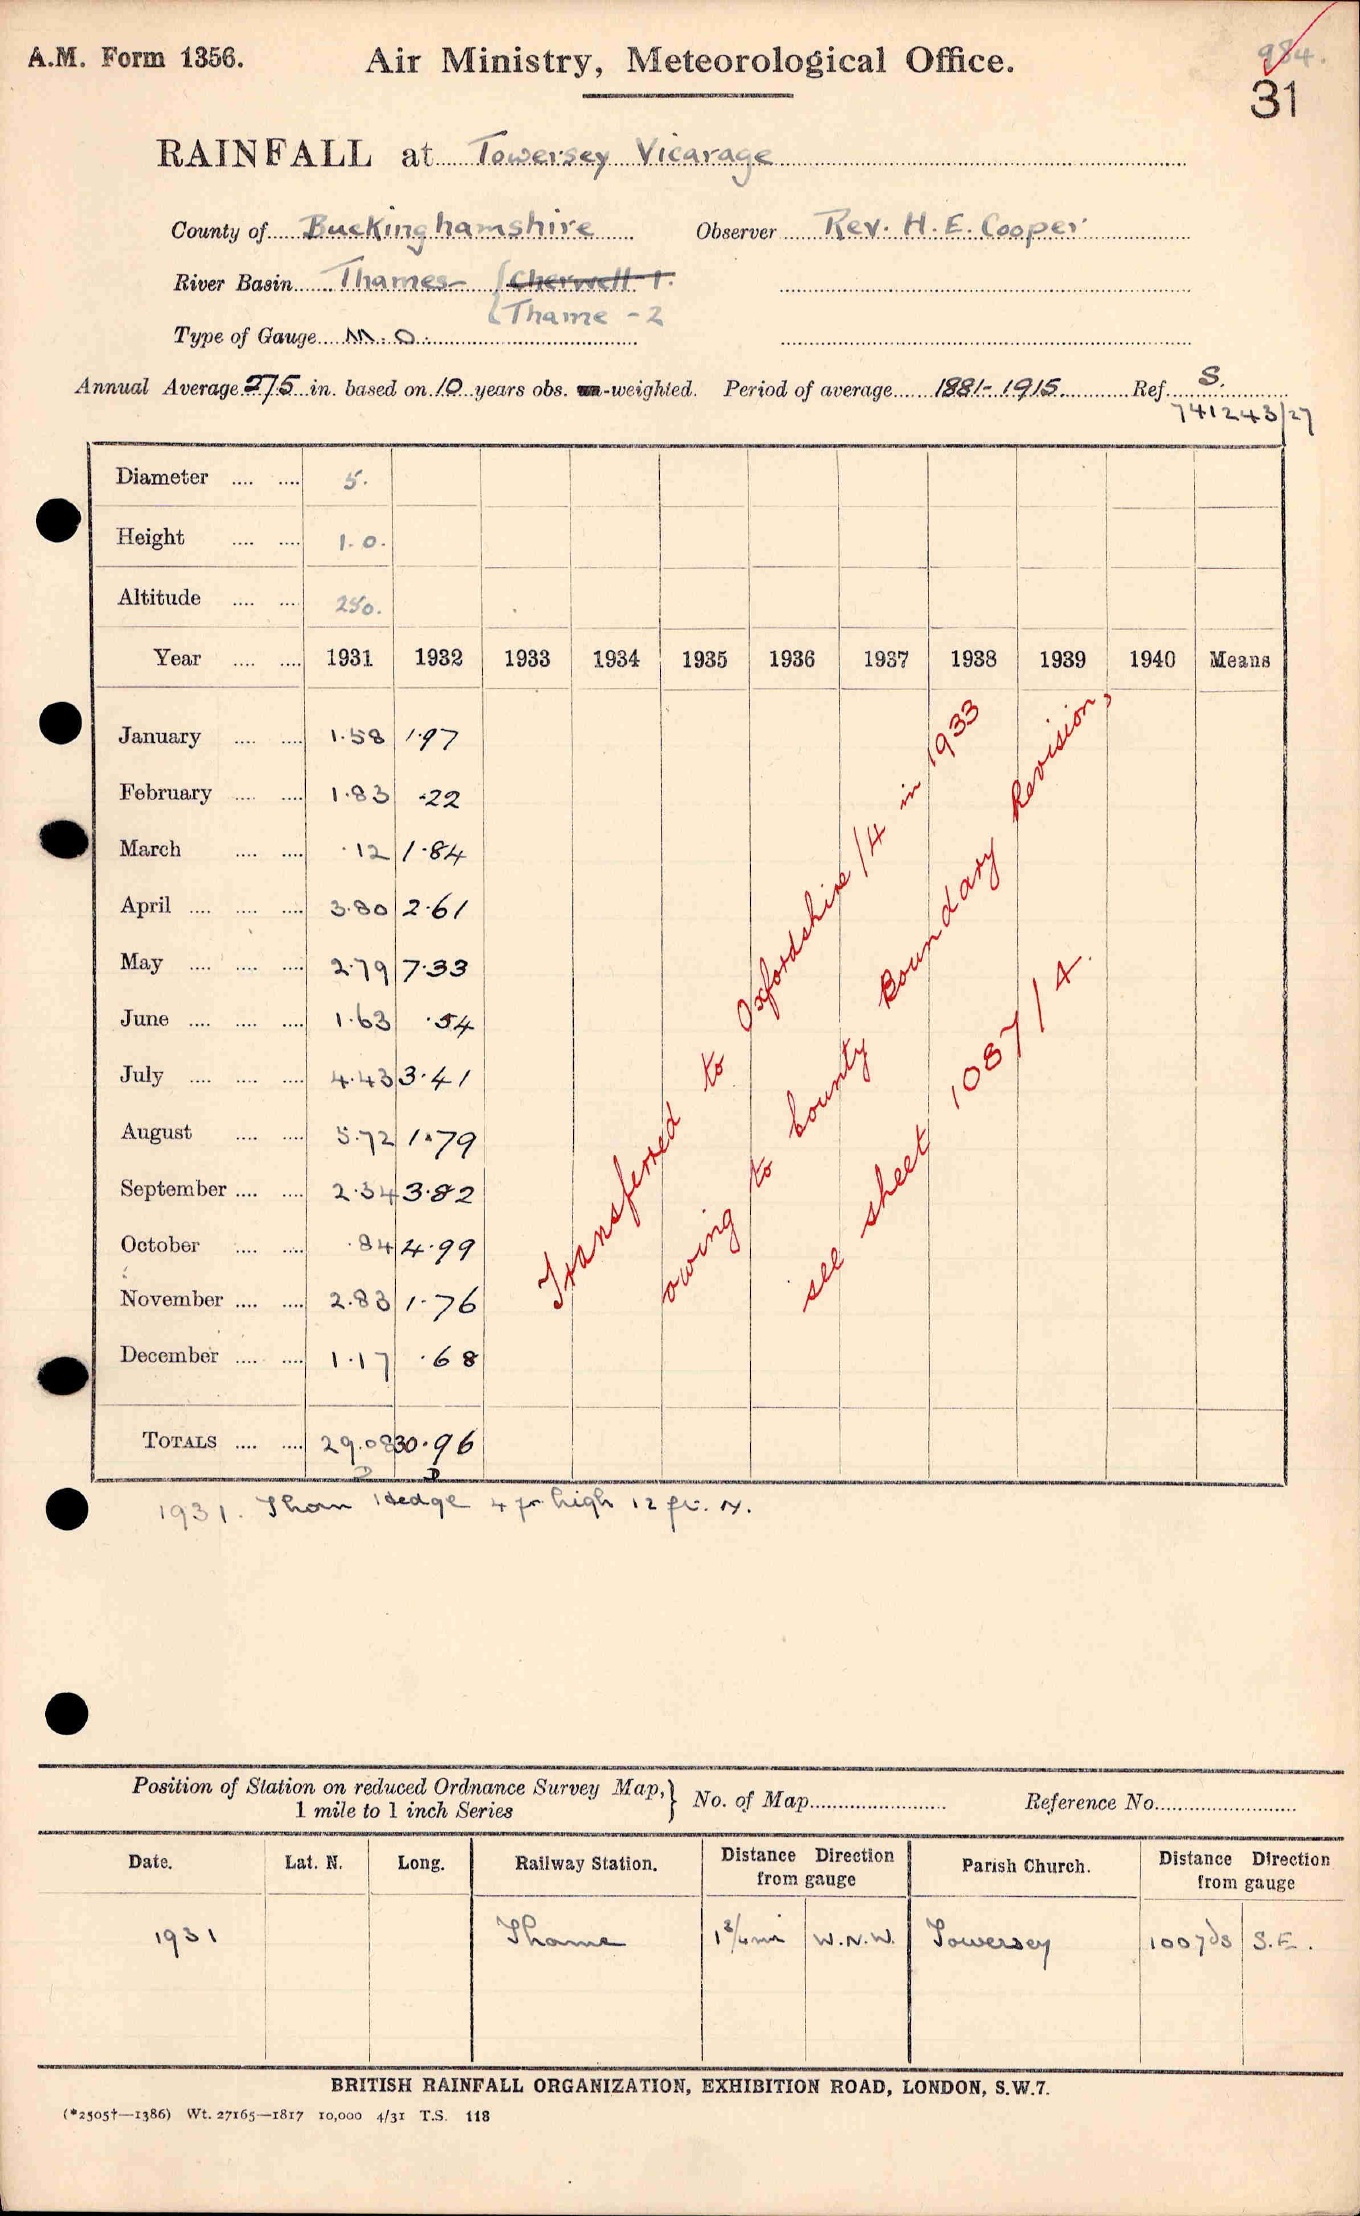 A.M. Form 1356.
Air Ministry, Meteorological Office.
984.
31
RAINFALL at Towersey Vicarage
County of Buckinghamshire Observer Rev. H. E. Cooper
River Basin Thames Cherwell-1.
Thame -2
Type of Gauge M.O.
Annual Average 27.5 in. based on 10 years obs. -weighted. Period of average 1881-1915 Ref. S.
741243/27
Diameter .... .... 5.
Height .... .... 1.0.
Altitude .... .... 250.
Year .... .... 1931 1932 1933 1934 1935 1936 1937 1938 1939 1940 Means
January .... .... 1.58 1.97
February .... .... 1.83 .22
March .... .... .12 1.84
April .... .... .... 3.80 2.61
May .... .... .... 2.79 7.33
June .... .... .... 1.63 .54
July .... .... .... 4.43 3.41
August .... .... 5.72 1.79
September .... .... 2.34 3.82
October .... .... .84 4.99
November .... .... 2.83 1.76
December .... .... 1.17 .68
TOTALS .... .... 29.08 30.96
D D
Transferred to Oxfordshire/4 in 1933
owing to County Boundary Revision,
see sheet 1087/4.
1931. Thorn Hedge 4 ft. high 12 ft. N.
Position of Station on reduced Ordnance Survey Map,
1 mile to 1 inch Series
No. of Map Reference No.
Date. Lat. N. Long. Railway Station. Distance Direction from gauge Parish Church. Distance Direction from gauge
1931 Thame 1 3/4 mi W.N.W. Towersey 100 yds S.E.
BRITISH RAINFALL ORGANIZATION, EXHIBITION ROAD, LONDON, S.W.7.
(*2505†—1386) Wt. 27165—1817 10,000 4/31 T.S. 118